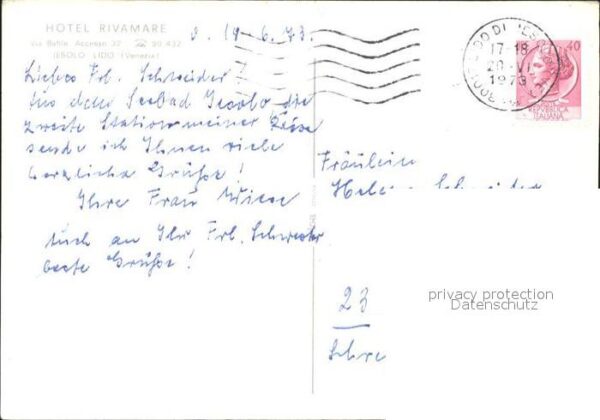 HOTEL RIVAMARE
Via Bafile, Accesso 32 ☎ 90 432
IESOLO LIDO (Venezia)
19.6.73.
Liebes Frl. Schneider
Aus dem Seebad Jesolo die
zweite Station meiner Reise
sende ich Ihnen viele
herzliche Grüße!
Ihre Frau
Auch an Ihr Frl. Schwester
beste Grüße!
LIDO DI JESOLO
17-18
20 VI
1973
40
REPUBBLICA
ITALIANA
Fräulein
23
privacy protection
Datenschutz